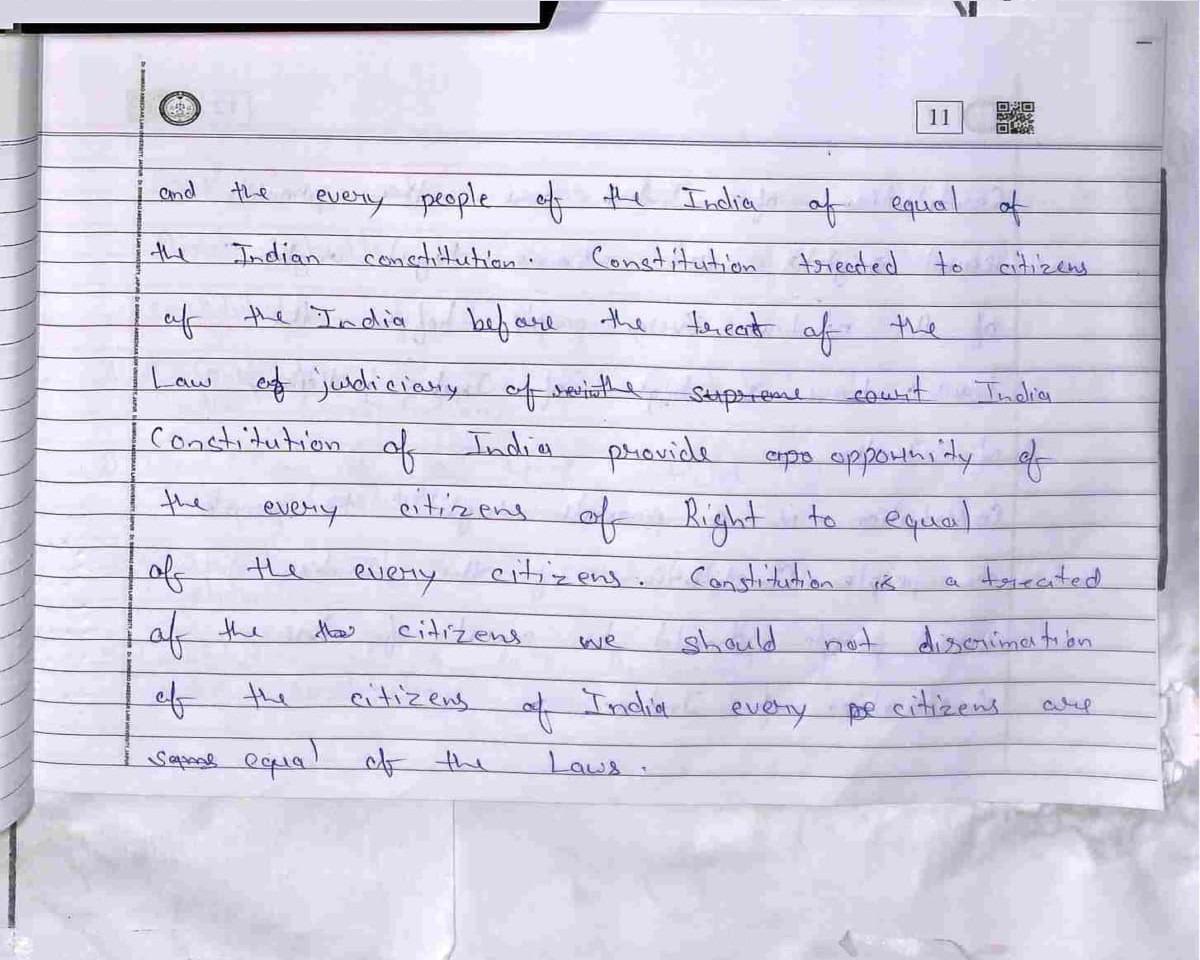 11
and the every people of the India of equal of
the Indian constitution. Constitution treated to citizens
of the India before the treat of the
Law of judiciary of the supreme court India
Constitution of India provide opportunity of
the every citizens of Right to equal
of the every citizens. Constitution is a treated
of the the citizens we should not discrimation
of the citizens of India every pe citizens are
same equal of the Laws.